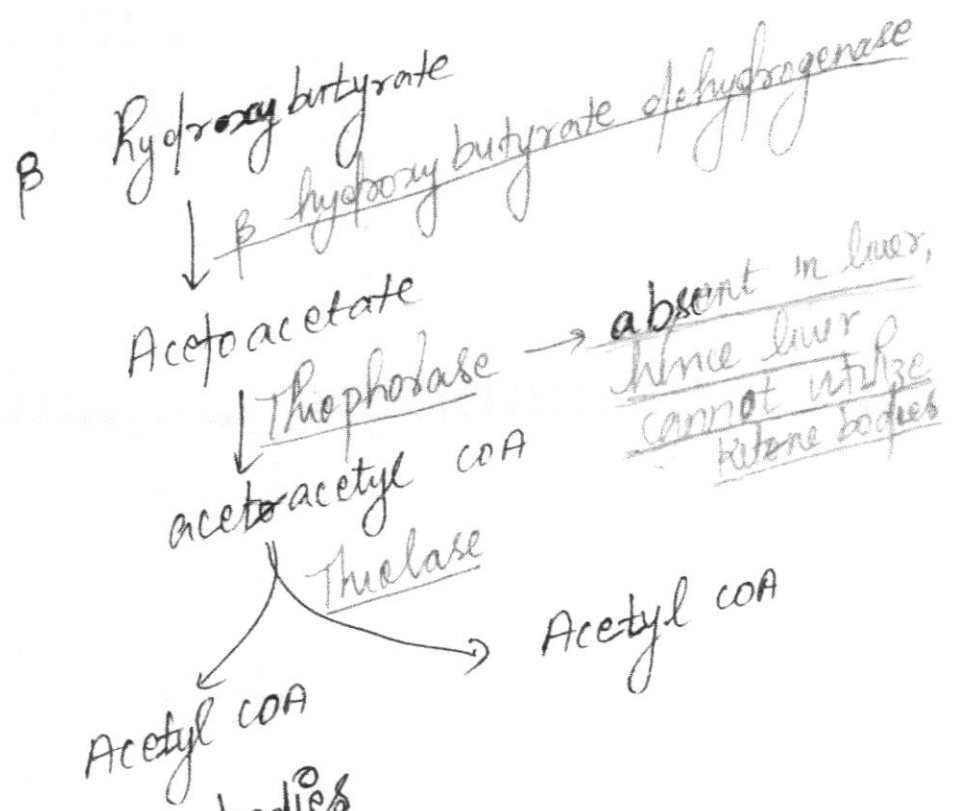 β hydroxybutyrate
β hydroxybutyrate dehydrogenase
Acetoacetate
Thiophorase → absent in liver,
hence liver
cannot utilize
ketone bodies
acetoacetyl COA
Thiolase
Acetyl COA
Acetyl COA
bodies